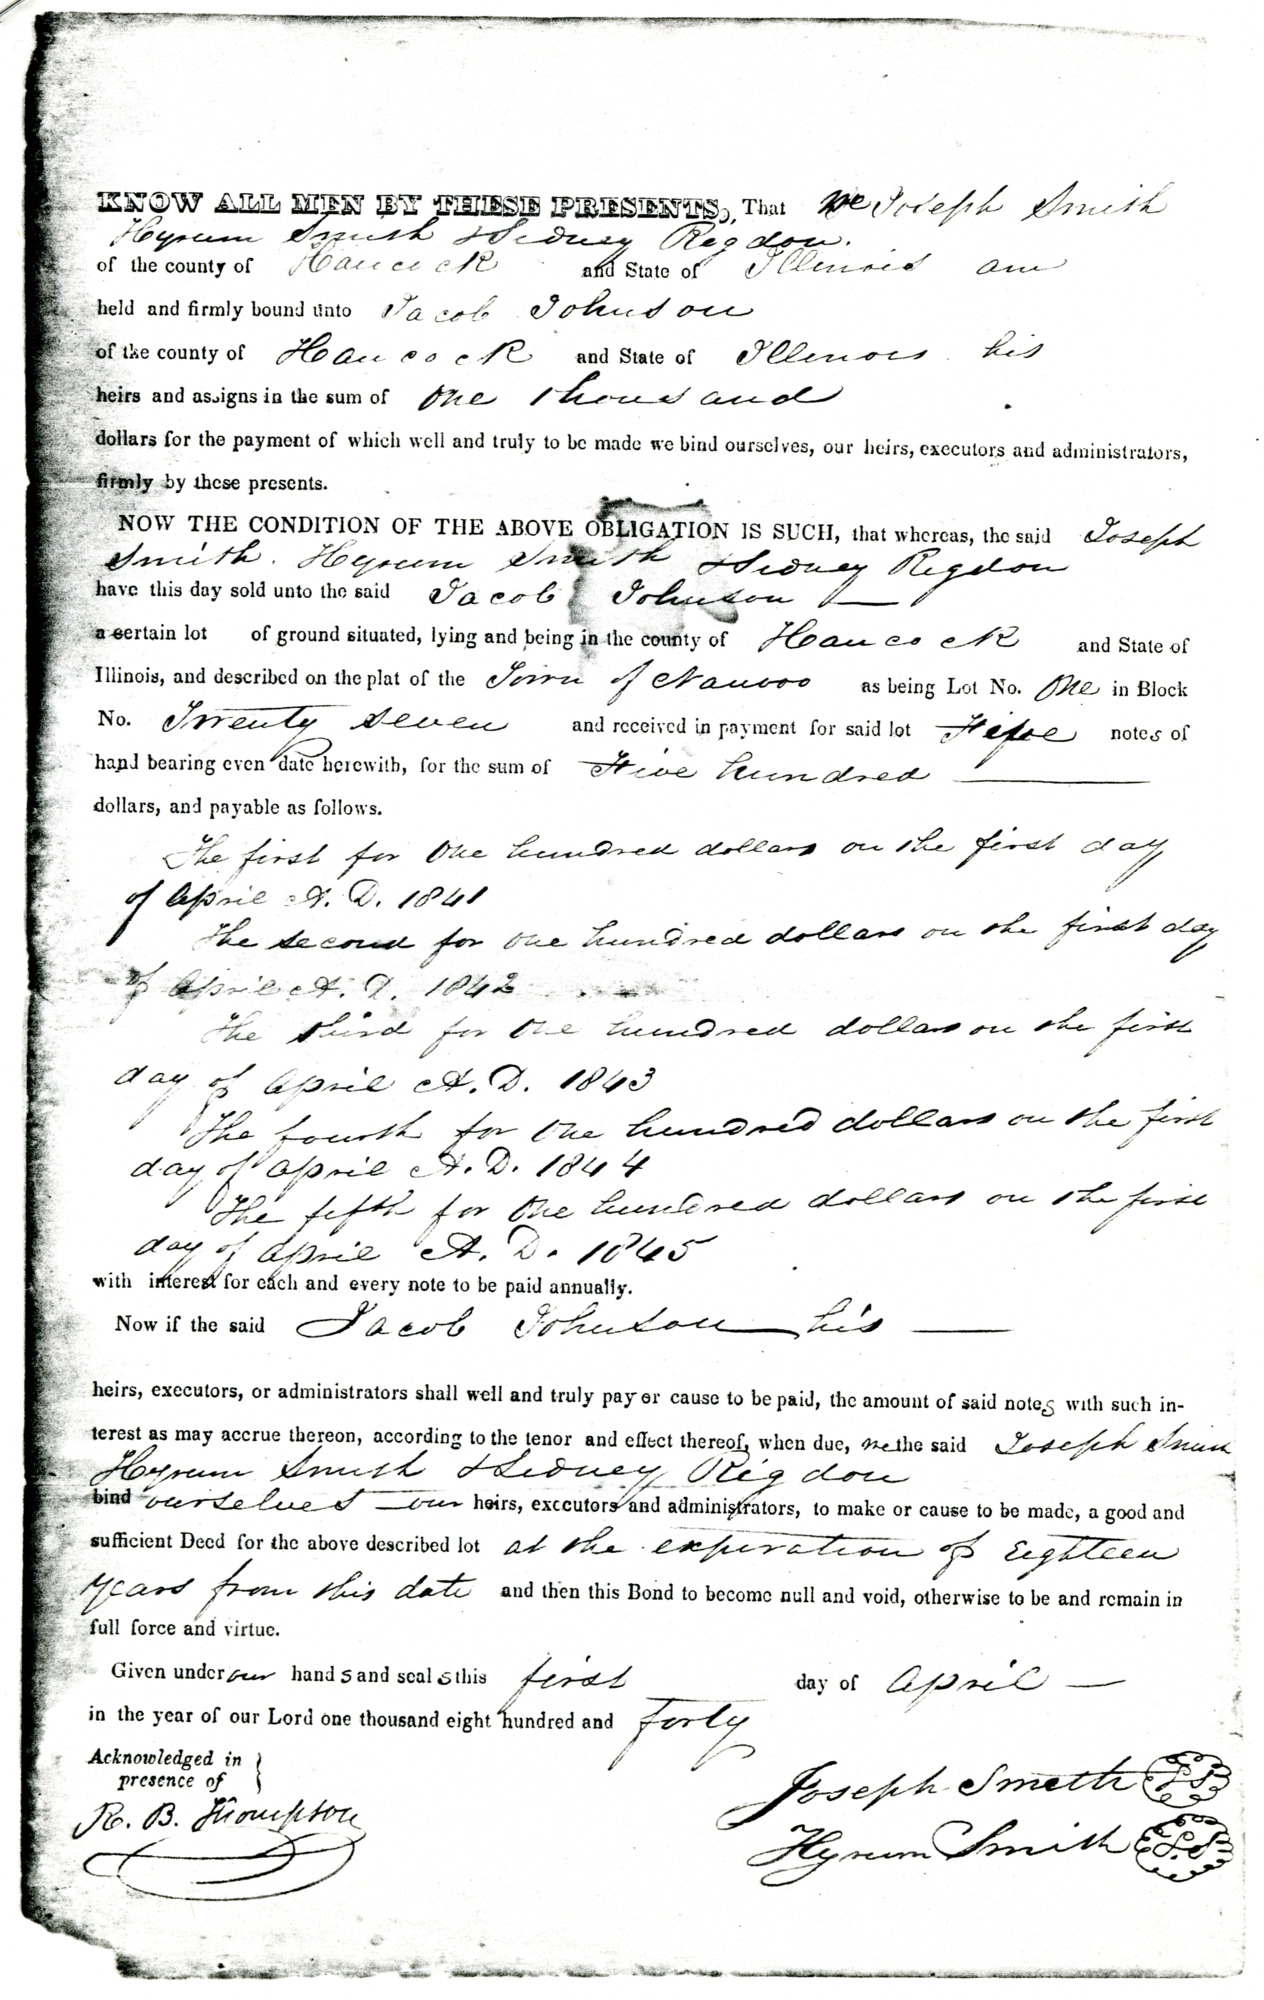 KNOW ALL MEN BY THESE PRESENTS, That We Joseph Smith
Hyrum Smith & Sidney Rigdon.
of the county of Hancock and State of Illinois am
held and firmly bound unto Jacob Johnson
of the county of Hancock and State of Illinois his
heirs and assigns in the sum of One thousand
dollars for the payment of which well and truly to be made we bind ourselves, our heirs, executors and administrators,
firmly by these presents.
NOW THE CONDITION OF THE ABOVE OBLIGATION IS SUCH, that whereas, the said Joseph
Smith. Hyrum Smith & Sidney Rigdon
have this day sold unto the said Jacob Johnson —
a certain lot of ground situated, lying and being in the county of Hancock and State of
Illinois, and described on the plat of the Town of Nauvoo as being Lot No. One in Block
No. Twenty seven and received in payment for said lot Five notes of
hand bearing even date herewith, for the sum of Five hundred —
dollars, and payable as follows.
The first for One hundred dollars on the first day
of April A. D. 1841
The second for one hundred dollars on the first day
of April A. D. 1842
The third for One hundred dollars on the first
day of April A. D. 1843
The fourth for One hundred dollars on the first
day of April A. D. 1844
The fifth for One hundred dollars on the first
day of April A. D. 1845
with interest for each and every note to be paid annually.
Now if the said Jacob Johnson his —
heirs, executors, or administrators shall well and truly pay or cause to be paid, the amount of said notes with such in-
terest as may accrue thereon, according to the tenor and effect thereof, when due, we the said Joseph Smith
Hyrum Smith & Sidney Rigdon
bind ourselves our heirs, executors and administrators, to make or cause to be made, a good and
sufficient Deed for the above described lot at the expiration of Eighteen
years from this date and then this Bond to become null and void, otherwise to be and remain in
full force and virtue.
Given under our hands and seals this first day of April —
in the year of our Lord one thousand eight hundred and forty
Acknowledged in
presence of
R. B. Thompson
Joseph Smith L S
Hyrum Smith L. S